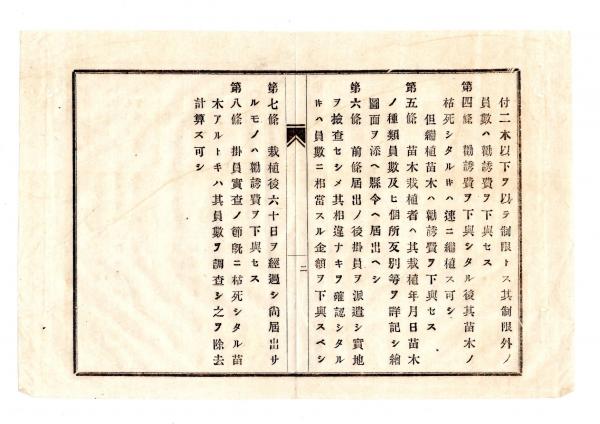 付二本以下ヲ以テ制限トス其制限外ノ
員數ハ勸誘費ヲ下與セス
第四條 勸誘費ヲ下與シタル後其苗木ノ
枯死シタルキハ速ニ補植ス可シ
但補植苗木ハ勸誘費ヲ下與セス
第五條 苗木栽植者ハ其栽植年月日苗木
ノ種類員數及ヒ個所反別等ヲ詳記シ繪
圖面ヲ添ヘ縣令ヘ屆出ヘシ
第六條 前條屆出ノ後掛員ヲ派遣シ實地
ヲ撿查セシメ其相違ナキヲ確認シタル
キハ員數ニ相當スル金額ヲ下與スベシ
二
第七條 栽植後六十日ヲ經過シ尙屆出サ
ルモノハ勸誘費ヲ下與セス
第八條 掛員實查ノ節旣ニ枯死シタル苗
木アルトキハ其員數ヲ調查シ之ヲ除去
計算ス可シ